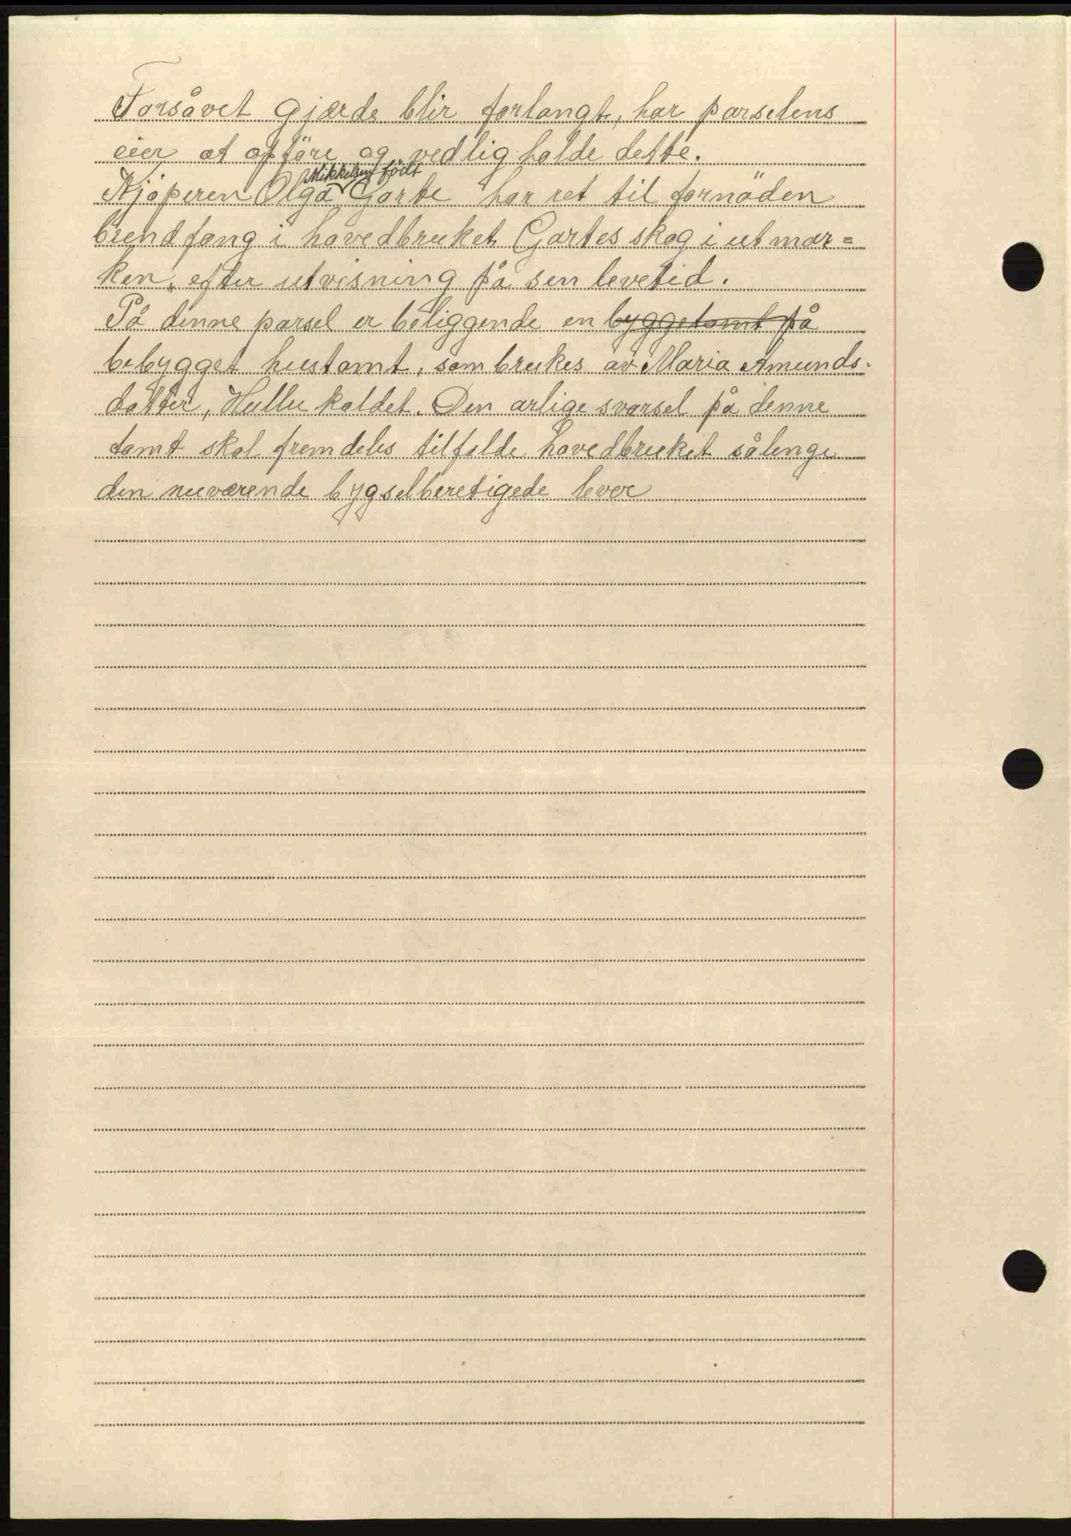 Forsåvet gjærde blir forlangt, har parselens
eier at opføre og vedligholde dette.
Mikkelsen født
Kjøperen Olga Garte har ret til fornöden
brendfang i hovedbruket Gartes skog i utmar=
ken, efter utvisning på sen levetid.
På denne parsel er beliggende en byggetomt på
bebygget hustomt, som brukes av Maria Amunds-
datter, Hullu kaldet. Den årlige svarsel på denne
tomt skal fremdeles tilfalde hovedbruket sålenge
den nuværende bygselberetigede lever